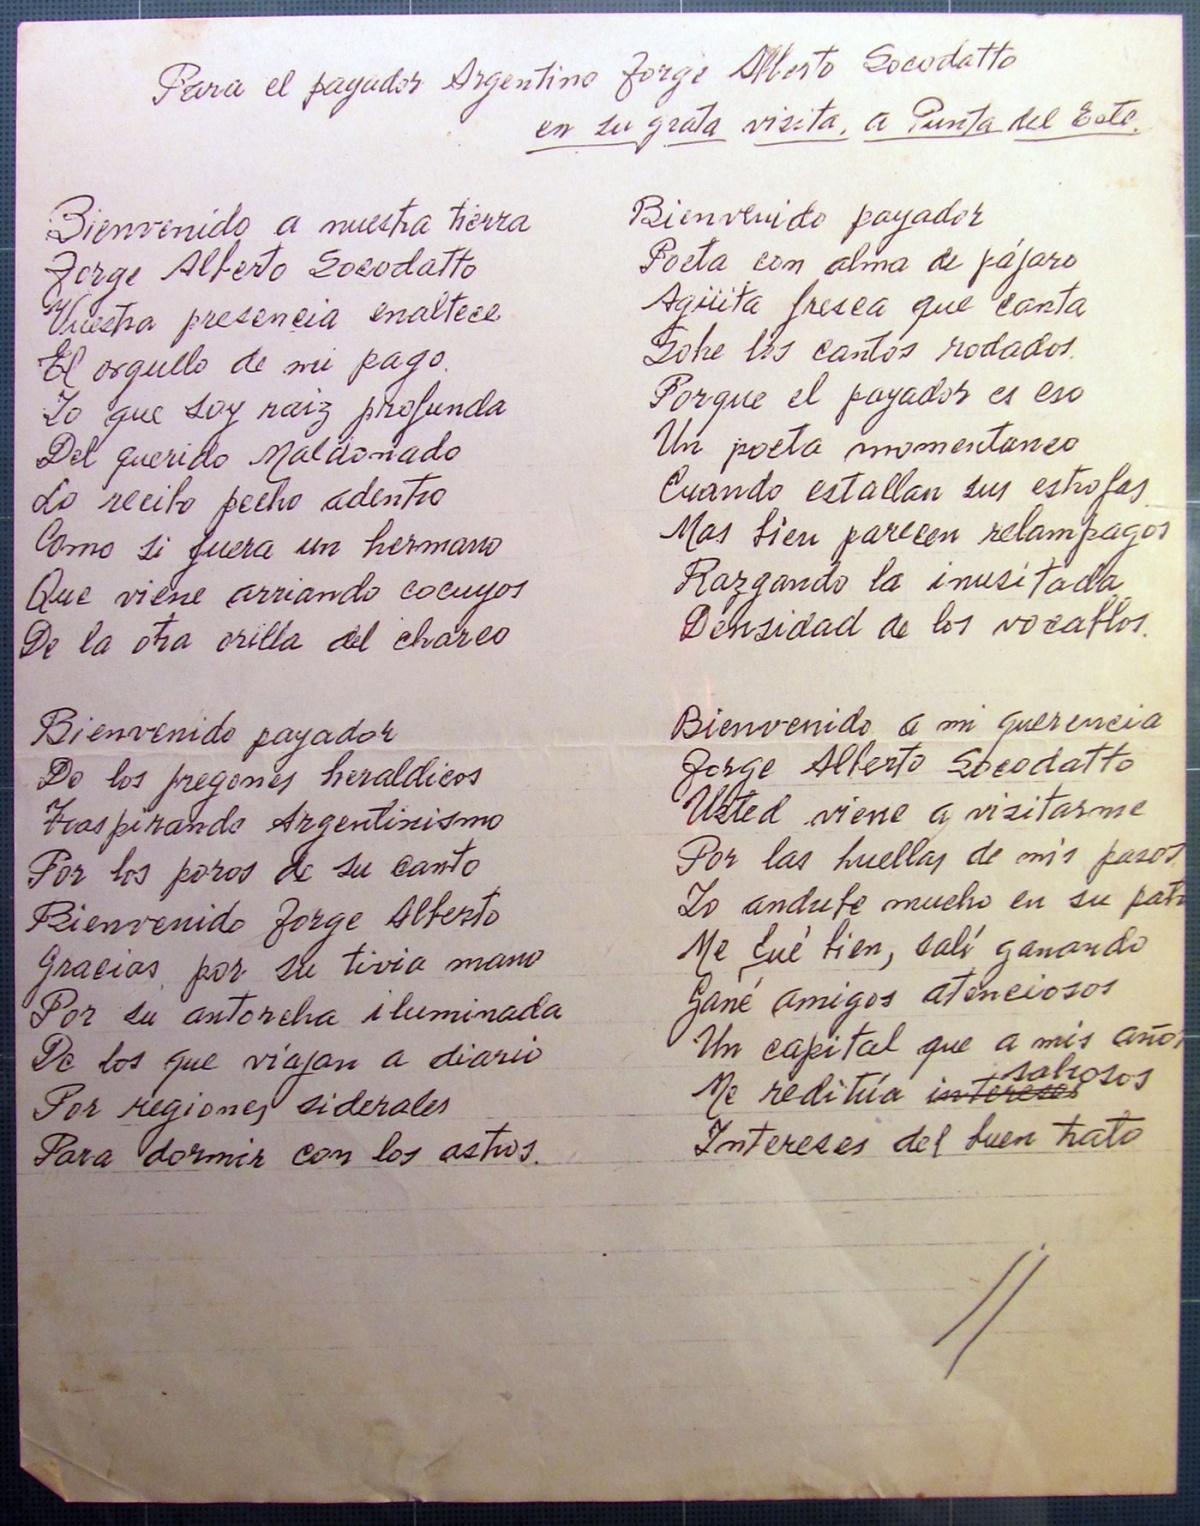 Para el payador Argentino Jorge Alberto Socodatto
en su grata visita, a Punta del Este.
Bienvenido a nuestra tierra
Jorge Alberto Socodatto
Vuestra presencia enaltece
El orgullo de mi pago.
Yo que soy raiz profunda
Del querido Maldonado
Lo recibo pecho adentro
Como si fuera un hermano
Que viene arriando cocuyos
De la otra orilla del charco
Bienvenido payador
De los pregones heraldicos
Traspirando Argentinismo
Por los poros de su canto
Bienvenido Jorge Alberto
Gracias, por su tivia mano
Por su antorcha iluminada
De los que viajan a diario
Por regiones siderales
Para dormir con los astros.
Bienvenido payador
Poeta con alma de pájaro
Agüita fresca que canta
Sobre los cantos rodados.
Porque el payador es eso
Un poeta momentaneo
Cuando estallan sus estrofas
Mas bien parecen relampagos
Razgando la inusitada
Densidad de los vocablos.
Bienvenido a mi querencia
Jorge Alberto Socodatto
Usted viene a visitarme
Por las huellas de mis pasos
Yo andube mucho en su
Me fué bien, salí ganando
Gané amigos atenciosos
Un capital que a mis años
Me reditúa intereses sabrosos
Intereses del buen trato